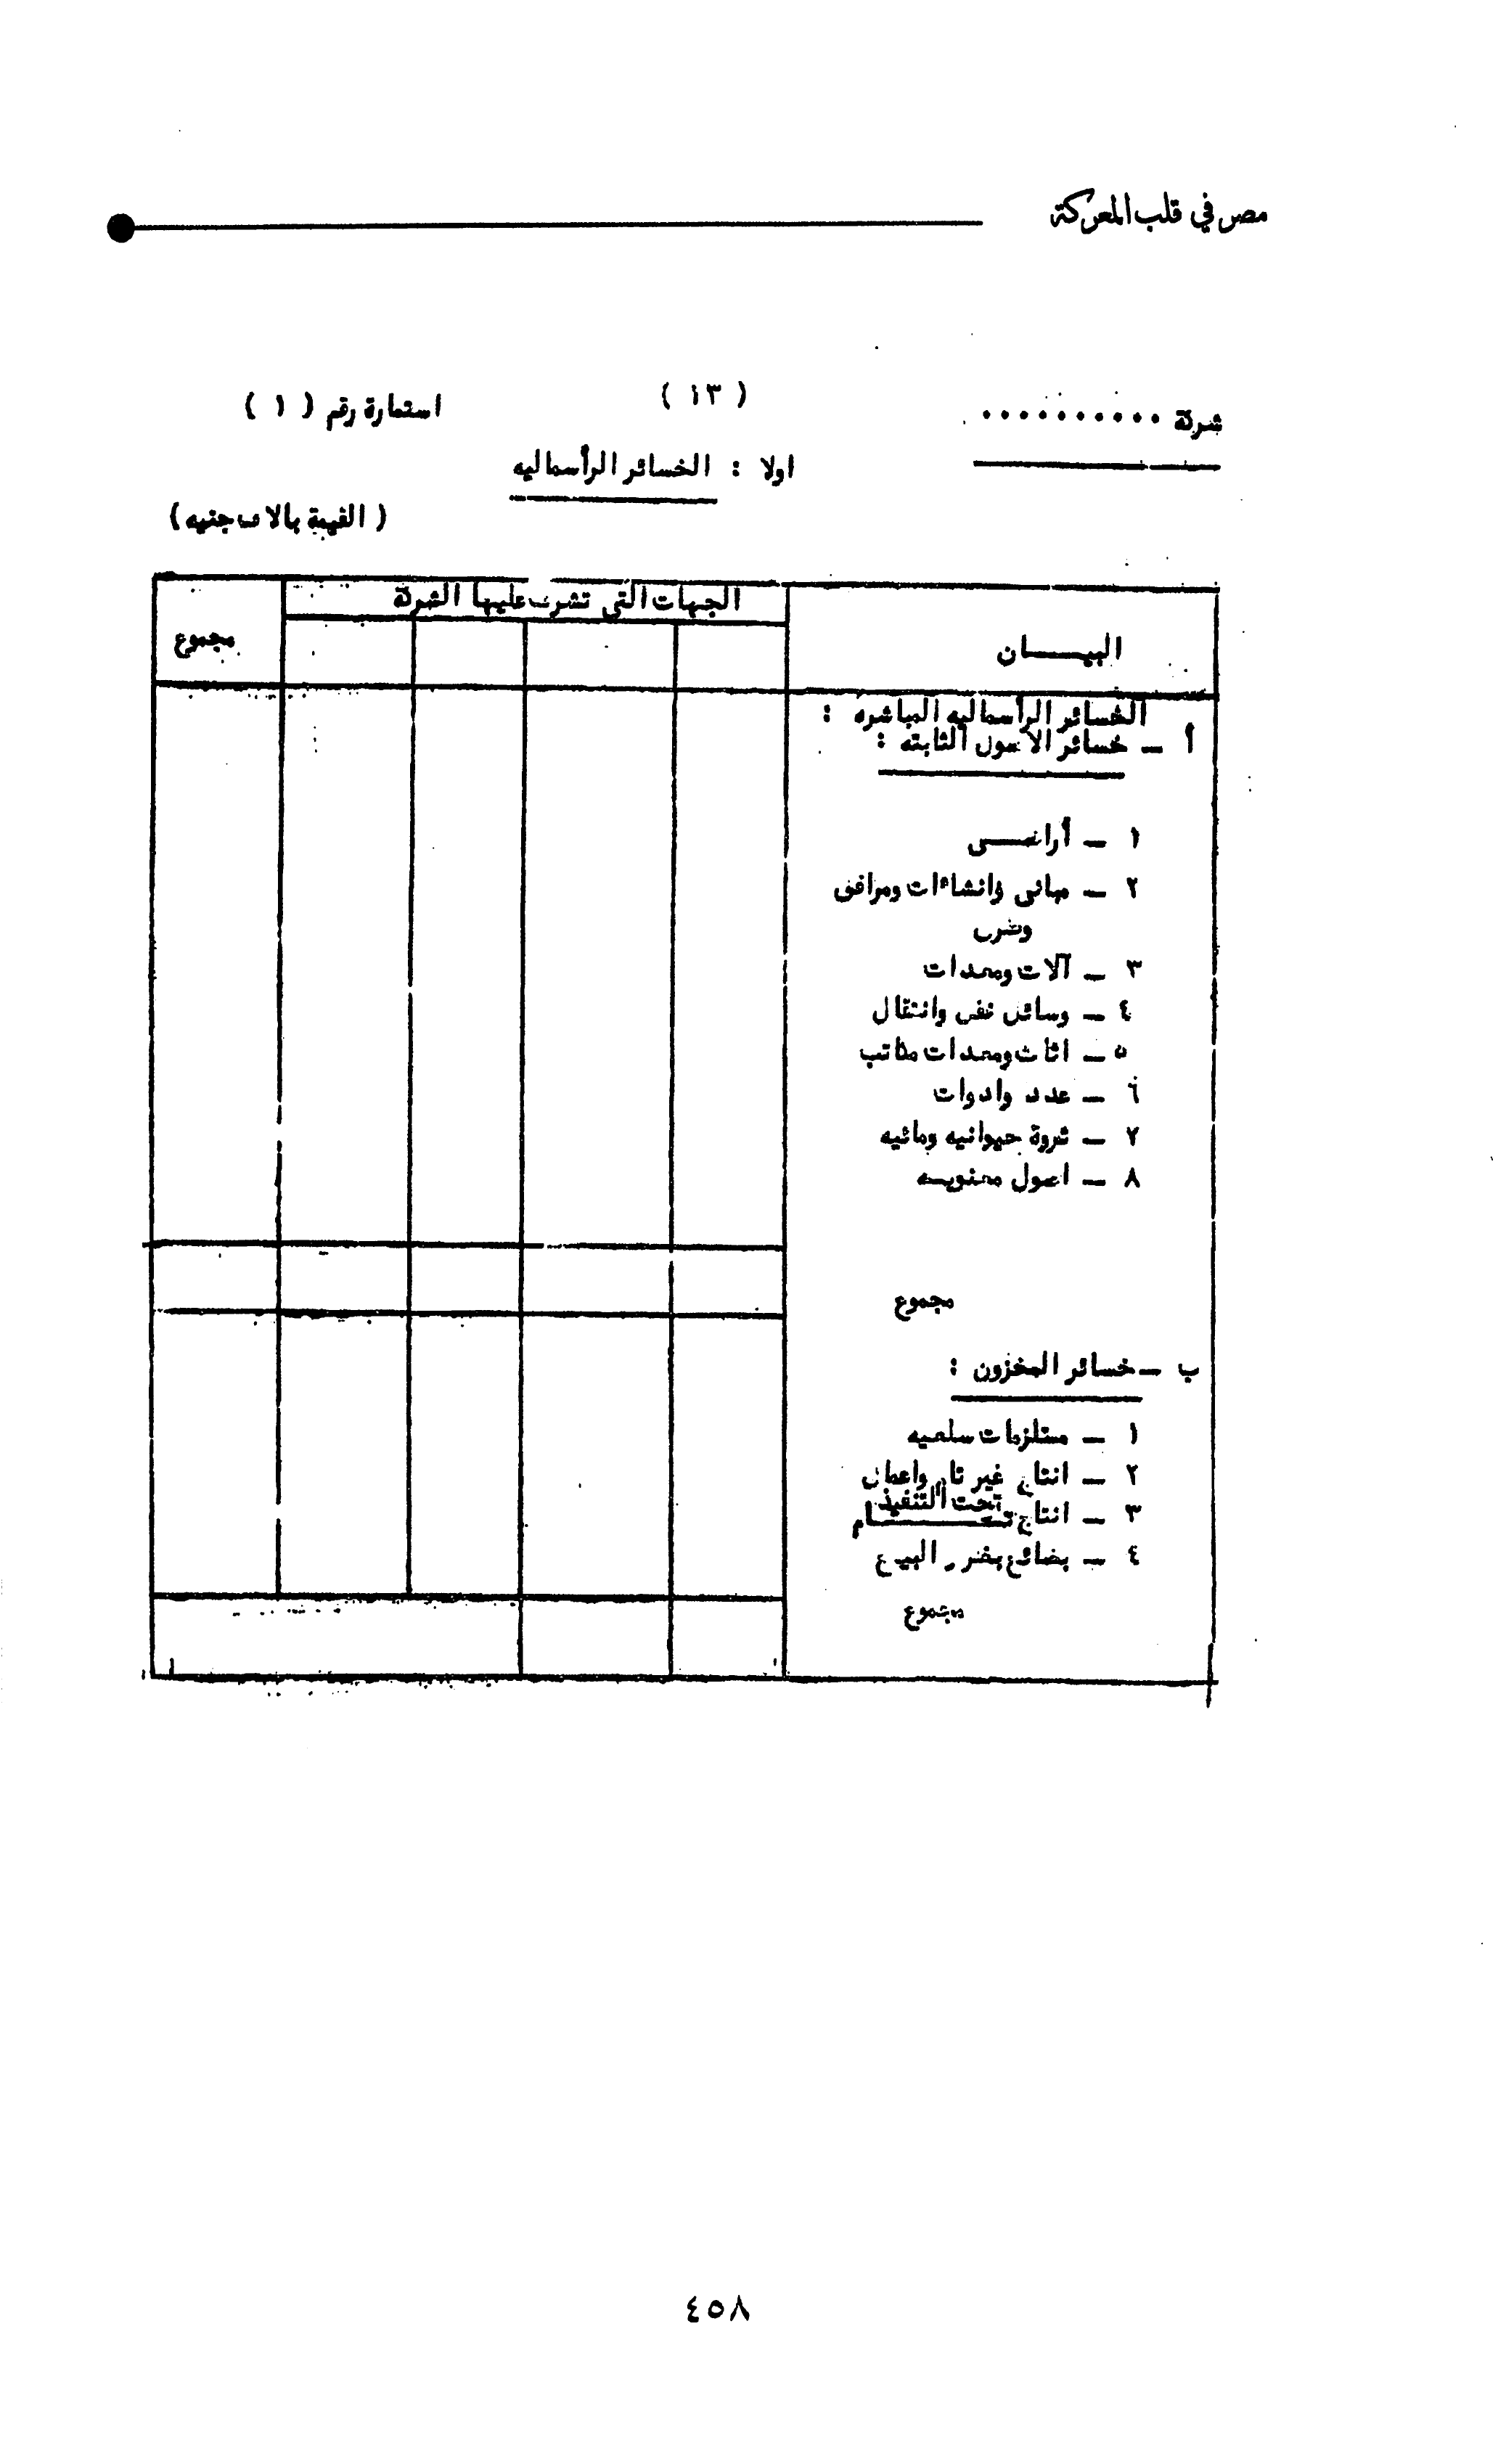 مصر في قلب المعركة
شركة ..........
( ١٣ )
استمارة رقم ( ١ )
اولا : الخسائر الرأسماليه
( القيمة بالالاف جنيه )
البيـــــان
الجهات التي تشرف عليها الشركة
مجموع
الخسائر الرأسماليه المباشره :
أ ــ خسائر الاصول الثابته :
١ ــ أراضـــى
٢ ــ مبانى وانشاءات ومرافق
وطرق
٣ ــ آلات ومعدات
٤ ــ وسائل نقل وانتقال
٥ ــ اثاث ومعدات مكاتب
٦ ــ عدد وادوات
٧ ــ ثروة حيوانيه ومائيه
٨ ــ اصول معنويـه
مجموع
ب ــ خسائر المخزون :
١ ــ مستلزمات سلعيه
٢ ــ انتاج غير تام واعمال
تحت التنفيذ
٣ ــ انتاج تـــــــام
٤ ــ بضائع بغرض البيع
مجموع
٤٥٨